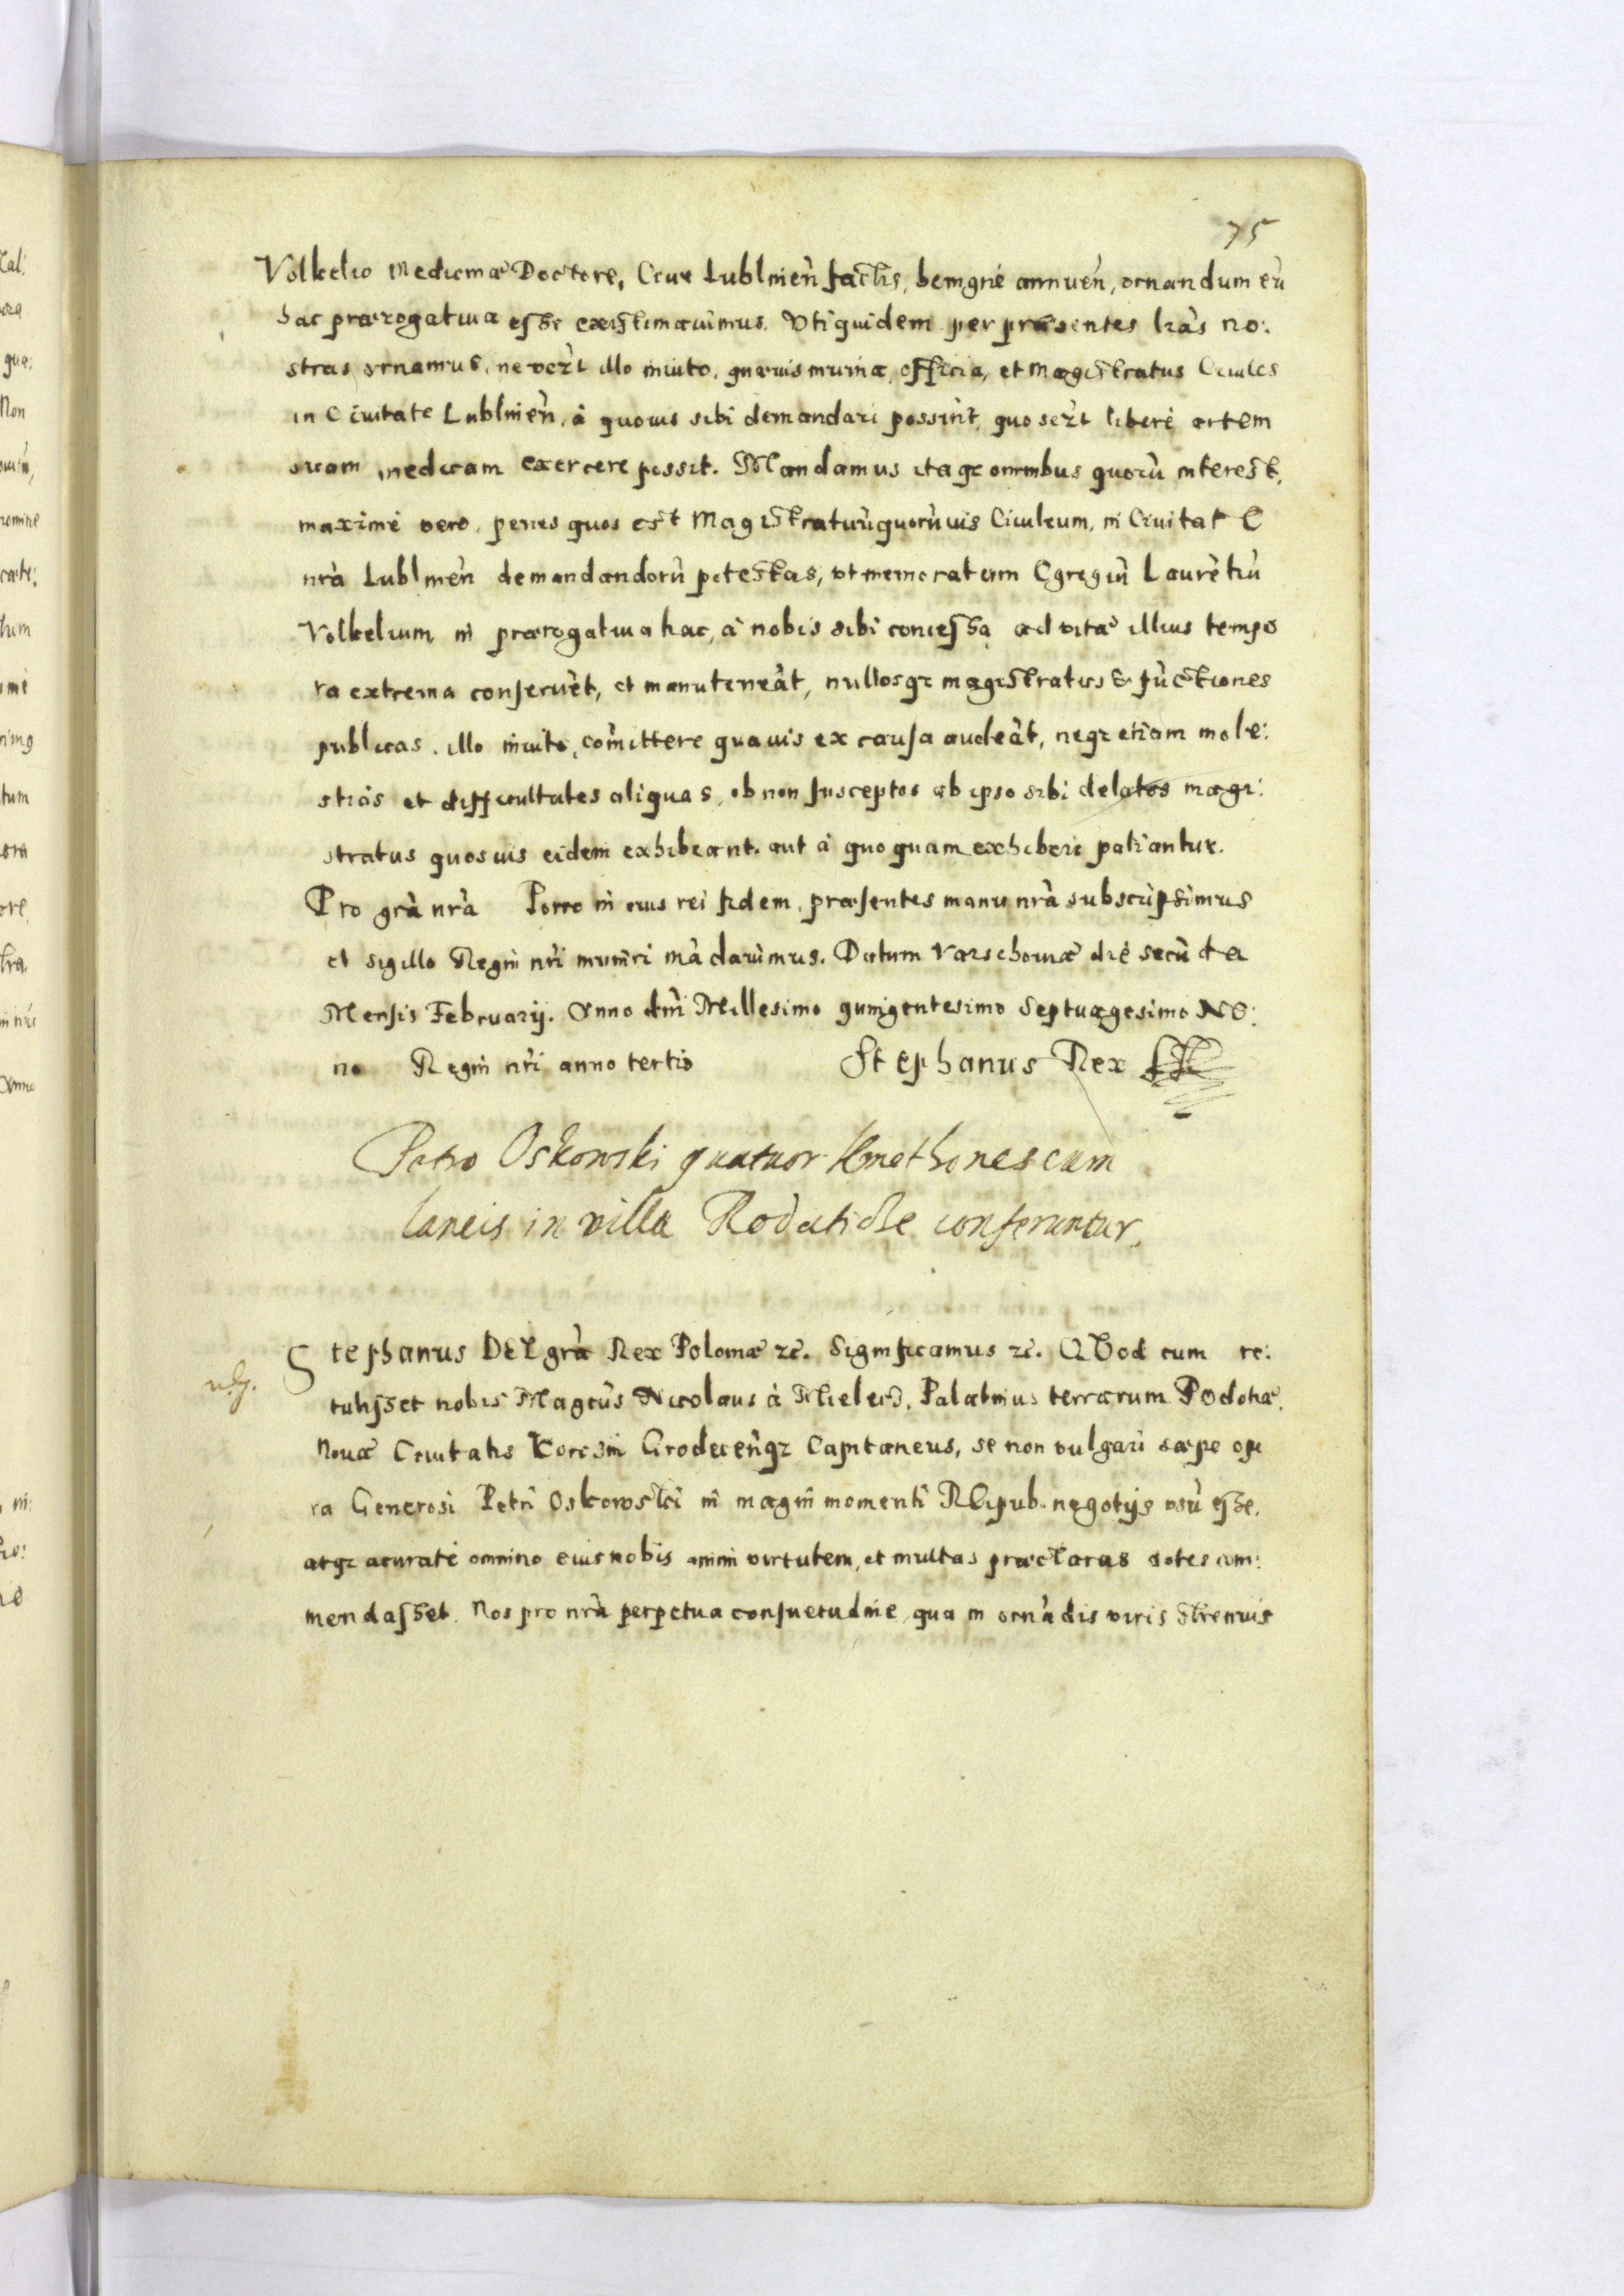 75
Volkelio Medicinæ Doctore, Ciue Lublineǹ factis, benignè annuèn, ornandum eù
hac prærogatiua esse existimauimus. Vti quidem per præsentes lràs no:
stras ornamus, ne vezt illo inuito, quæuis munia, officia, et Magistratus Ciuiles
in Ciuitate Lublineǹ, à quouis sibi demandari possint, quo sezt liberè artem
suam medicam exercere possit. Mandamus itaqz omnibus quorù interest,
maximè vero, penes quos est Magistratuù quorùuis Ciuilium, in Ciuitate
nrà Lublineǹ demandandorù potestas, vt memoratum Egregiù Laurètiù
Volkelium in prærogatiua hac, à nobis sibi concessa ad vitæ illius tempo
ra extrema conseruèt, et manuteneàt, nullosqz magistratus & fùctiones
publicas, illo inuito, còmittere quauis ex causa audeàt, neqz etiam mole:
stias et difficultates aliquas, ob non susceptos ab ipso sibi delatos magi:
stratus quosuis eidem exhibeant, aut à quoquam exhiberi patiantur.
Pro grà nrà Porro in cuius rei fidem, præsentes manu nrà subscripsimus
et sigillo Regni nri muniri màdauimus. Datum Varschouiæ diè secùda
Mensis Februarij. Anno dni Millesimo quingentesimo Septuagesimo No:
no Regni nri anno tertio Stephanus Rex
Petro Oskowski quatuor kmethones cum
laneis in villa Rodaticze conferuntur.
Stephanus DEI grà Rex Poloniæ zc. Significamus zc. QVod cum re:
tulisset nobis Magcùs Nicolaus à Mielecz, Palatinus terrarum Podoliæ,
Nouæ Ciuitatis Korczin Grodecenqz Capitaneus, se non vulgari sæpe ope
ra Generosi Petri Oskowski in magni momenti REipub. negotijs vsù esse,
atqz accuratè omnino eius nobis animi virtutem, et multas præclaras dotes com:
mendasset. Nos pro nrà perpetua consuetudine, qua in ornàdis viris strenuis